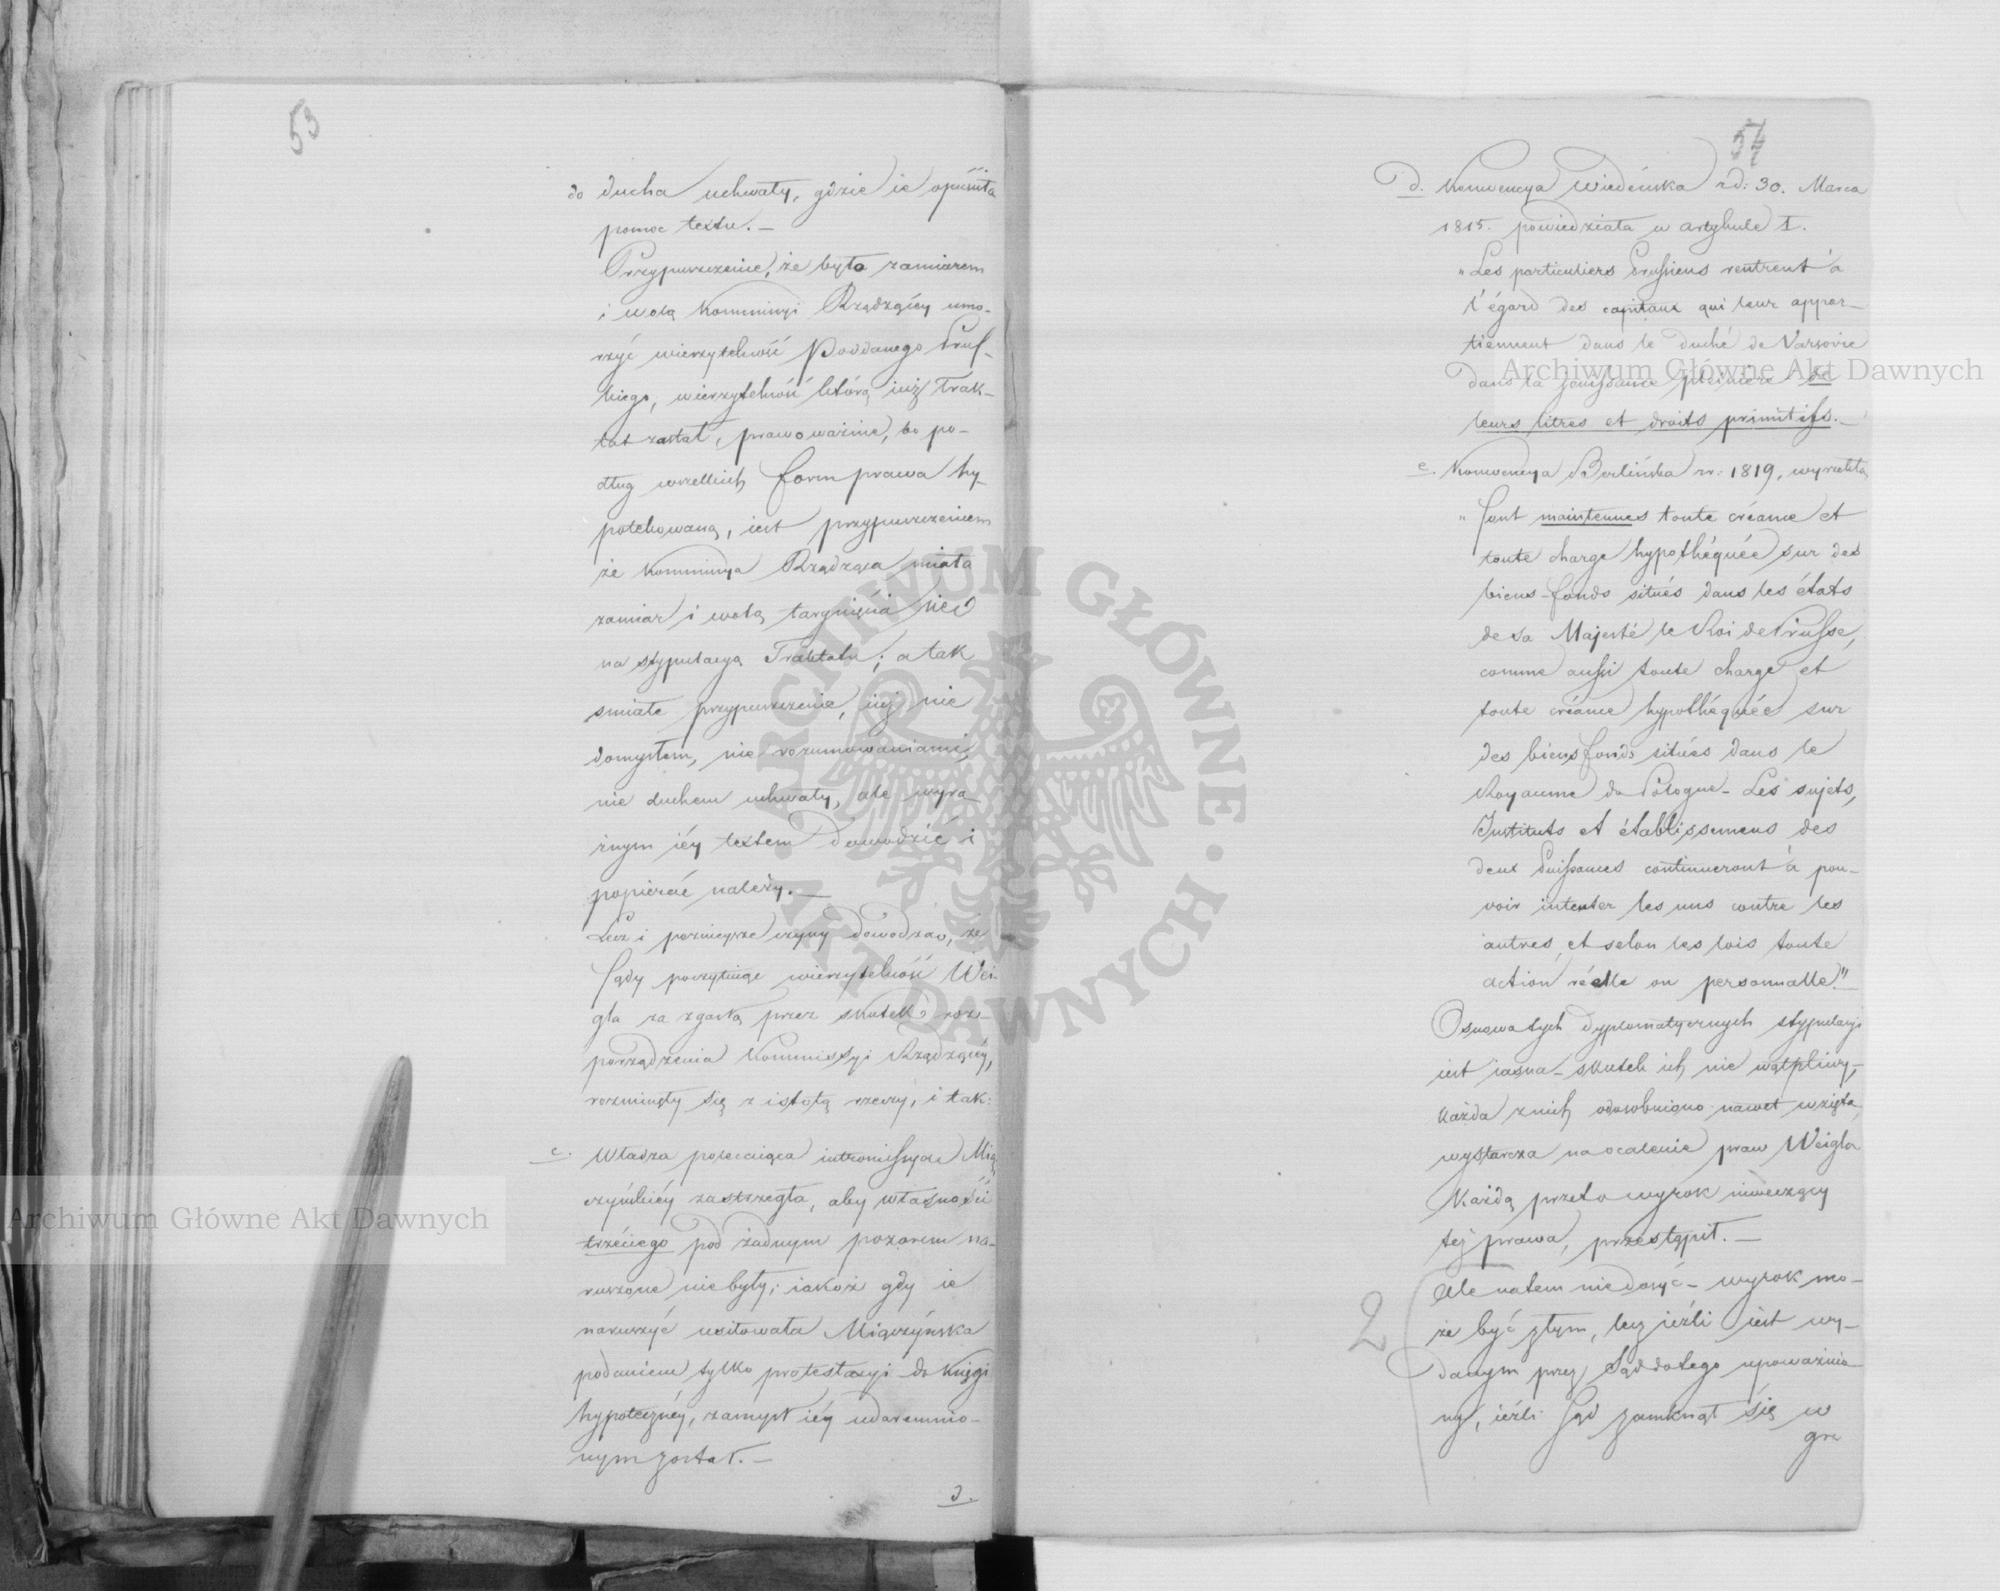 53
do ducha uchwały, gdzie ie opuściła
pomoc textu. —
Przypuszczenie, że było zamiarem
i wolą Kommissyi Rządzącey umo-
rzyć wierzytelność Poddanego Prus-
kiego, wierzytelność którą iuż Trak-
tat zastał, prawoważnie, bo po-
dług wszelkich form prawa hy-
potekowaną, iest przypuszczeniem
że Kommissya Rządząca miała
zamiar i wolą targnięcia się
na stypulacyą Traktatu; a tak
smiałe przypuszczenie, iuż nie
domysłem, nie rozumowaniami,
nie duchem uchwały, ale wyra-
źnym iéy textem dowodzić i
popierać należy. —
Lecz i pozniejsze czyny dowodzą, że
Sądy poczytuiąc wierzytelność Wei-
gla za zgasłą przez skutek roz-
porządzenia Kommissyi Rządzącéy,
rozminęły się z istotą rzeczy, i tak:
c. Władza polecaiąca intromissyą Mią-
czyńskiéy zastrzegła, aby własności
trzeciego pod żadnym pozorem na-
ruszone nie były; iakoż gdy ie
naruszyć usiłowała Miączyńska
podaniem tylko protestacyi do Księgi
hypotecznéy, zamysł iéy udaremnio-
nym został. —
d.
54
d. Konwencya Wiedeńska z d: 30. Marca
1815. powiedziała w artykule I.
"Les particuliers Prussiens rentrent à
l'égard des capitaux qui leur appar-
tiennent dans le duché de Varsovie
dans la jouissance plénière de
leurs titres et droits primitifs. —
e. Konwencya Berlińska r: 1819, wyrzekła
"Sont maintenues toute créance et
toute charge hypothéquée sur des
biens-fonds situés dans les états
de sa Majesté le Roi de Prusse,
comme aussi toute charge et
toute créance hypothéquée sur
des biens fonds situés dans le
Royaume de Pologne - Les sujets,
Instituts et établissemens des
deux Puissances continueront à pou-
voir intenter les uns contre les
autres, et selon les lois toute
action réelle ou personnalle." —
Osnowa tych dyplomatycznych stypulacyi
iest iasna - skutek ich nie wątpliwy -,
Każda z nich odosobniono nawet wzięta,
wystarcza na ocalenie praw Weigla
Każdą przeto wyrok niweczący
też prawa, przestąpił. —
2
Ale na tem nie dosyć - wyrok mo-
że być złym, lecz ieźli iest wy-
danym przez Sąd do tego upoważnio-
ny, ieźli Sąd zamknął się w
gra
Archiwum Główne Akt Dawnych
Archiwum Główne Akt Dawnych
ARCHIWUM GŁÓWNE · AKT DAWNYCH ·